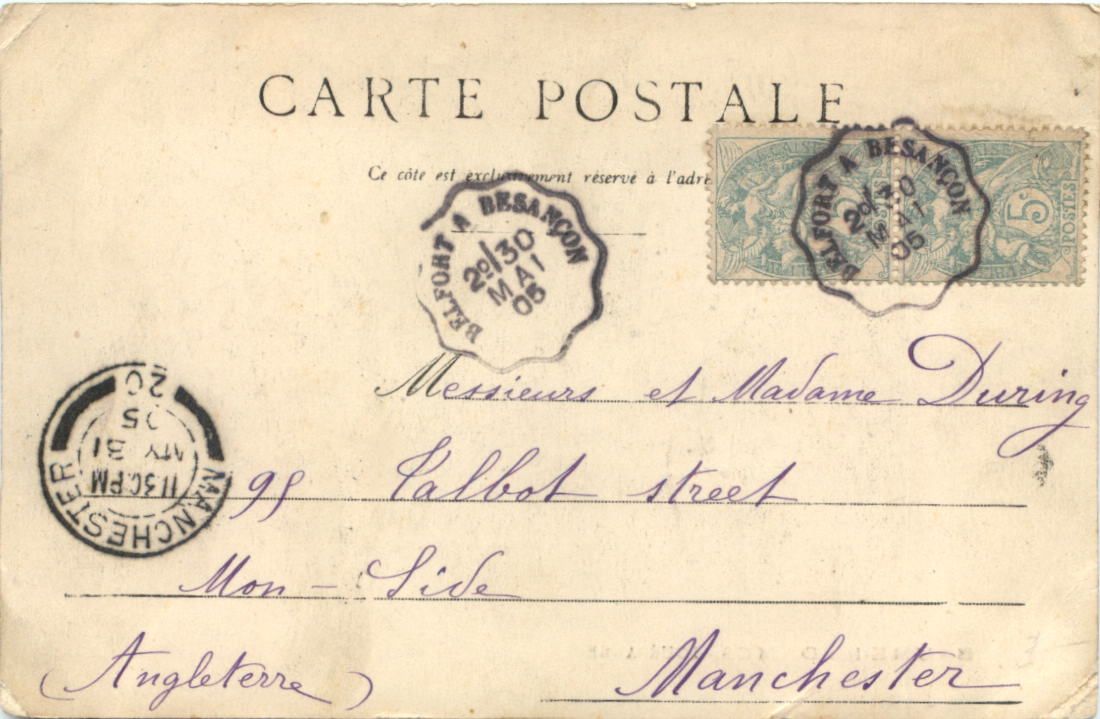 CARTE POSTALE
Ce côté est exclusivement réservé à l'adre
BELFORT A BESANÇON
2º/30
MAI
05
BELFORT A BESANÇON
2º/30
MAI
05
5
POSTES
Messieurs et Madame During
MANCHESTER
11 30 PM
MY 31
05
20
99 Talbot street
Mon - Side
(Angleterre)
Manchester